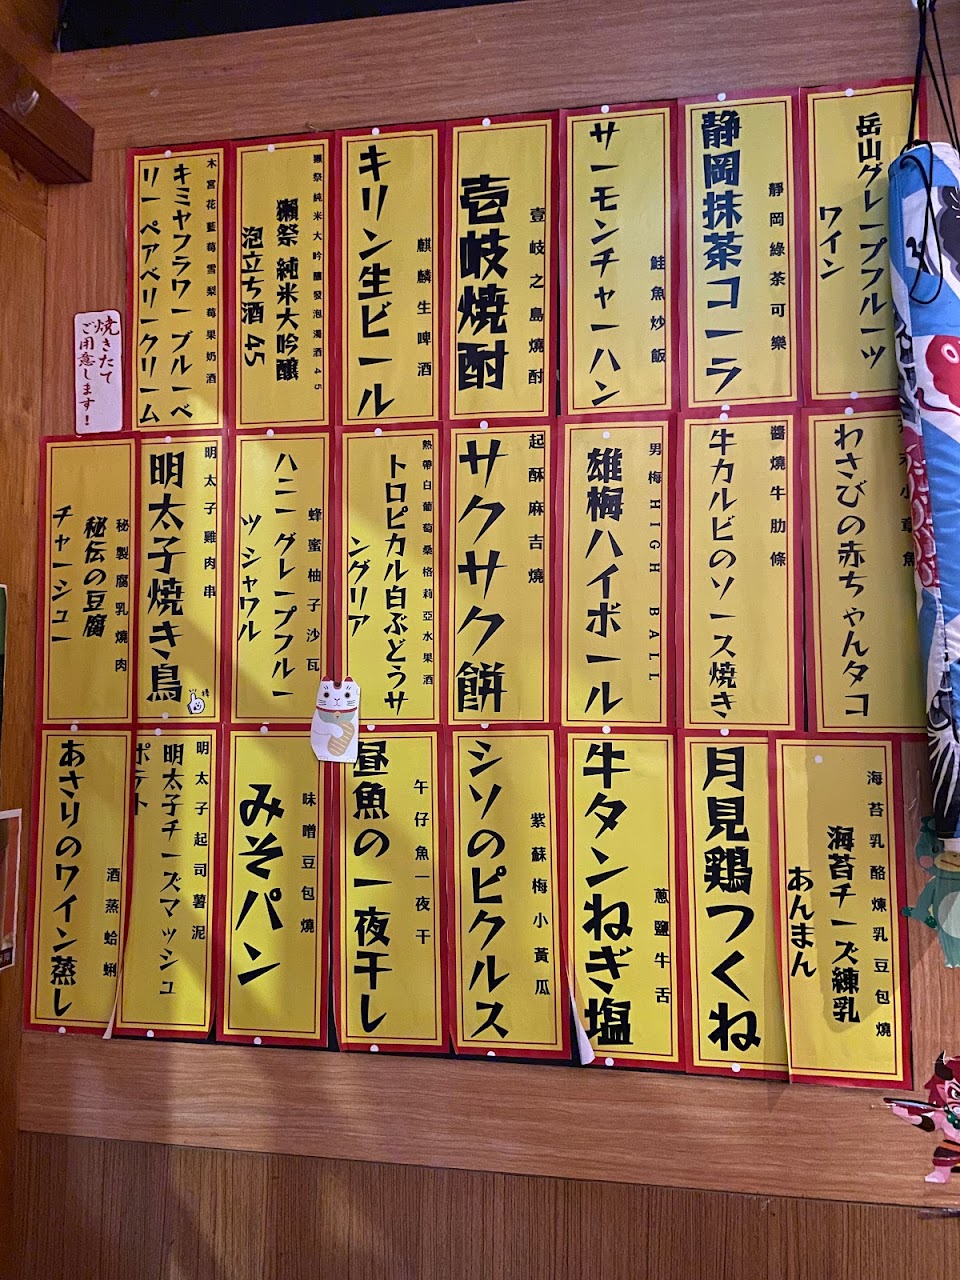 岳山グレープフルーツ
ワイン
靜岡綠茶可樂
静岡抹茶コーラ
鮭魚炒飯
サーモンチャーハン
壹岐之島燒酎
壱岐焼酎
麒麟生啤酒
キリン生ビール
獺祭純米大吟釀發泡濁酒45
獺祭 純米大吟醸
泡立ち酒 45
木宮花藍莓雪梨莓果奶酒
キミヤフラワーブルーベ
リーペアベリークリーム
焼きたて
ご用意します!
小章魚
わさびの赤ちゃんタコ
醬燒牛肋條
牛カルビのソース焼き
男梅HIGH BALL
雄梅ハイボール
起酥麻吉燒
サクサク餅
熱帶白葡萄桑格莉亞水果酒
トロピカル白ぶどうサ
ングリア
蜂蜜柚子沙瓦
ハニーグレープフルー
ツシャワル
明太子雞肉串
明太子焼き鳥
秘製腐乳燒肉
秘伝の豆腐
チャーシュー
海苔乳酪煉乳豆包燒
海苔チーズ練乳
あんまん
月見鶏つくね
蔥鹽牛舌
牛タンねぎ塩
紫蘇梅小黃瓜
シソのピクルス
午仔魚一夜干
昼魚の一夜干し
味噌豆包燒
みそパン
明太子起司薯泥
明太子チーズマッシュ
ポテト
酒蒸蛤蜊
あさりのワイン蒸し